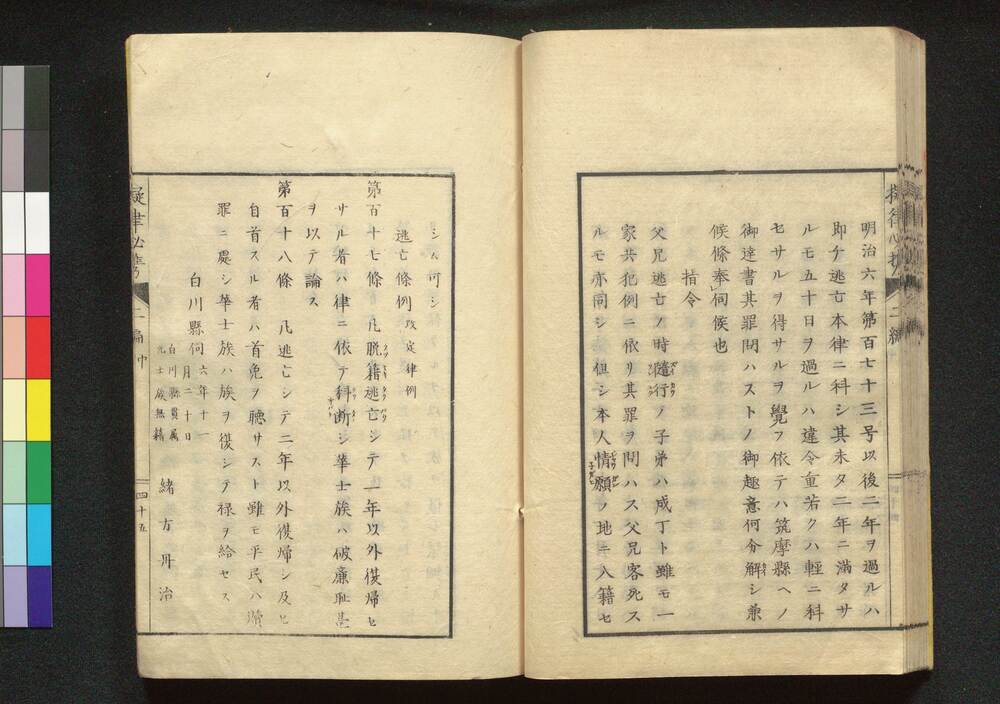 明治六年第百七十三号以後二年ヲ過ルハ
即チ逃亡本律ニ科シ其未タ二年ニ滿タサ
ルモ五十日ヲ過ルハ違令重若クハ輕ニ科
セサルヲ得サルヲ覺フ依テハ筑摩縣ヘノ
御達書其罪問ハストノ御趣意何分解シ兼
候條奉伺候也
指令
父兄逃亡ノ時隨行ノ子弟ハ成丁ト雖モ一
家共犯例ニ依リ其罪ヲ問ハス父兄客死ス
ルモ亦同シ但シ本人情願ノ地ニ入籍セ
シム可シ
逃亡條例 改定律例
第百十七條 凡脱籍逃亡シテ一年以外復帰セ
サル者ハ律ニ依テ科断シ華士族ハ破廉耻甚
ヲ以テ論ス
第百十八條 凡逃亡シテ二年以外復帰シ及ヒ
自首スル者ハ首免ヲ聴サスト雖モ平民ハ贖
罪ニ處シ華士族ハ族ヲ復シテ禄ヲ給セス
白川縣伺 六年十一月二十日
白川縣貫属元士族無籍
緒方舟治
二編中
四十五